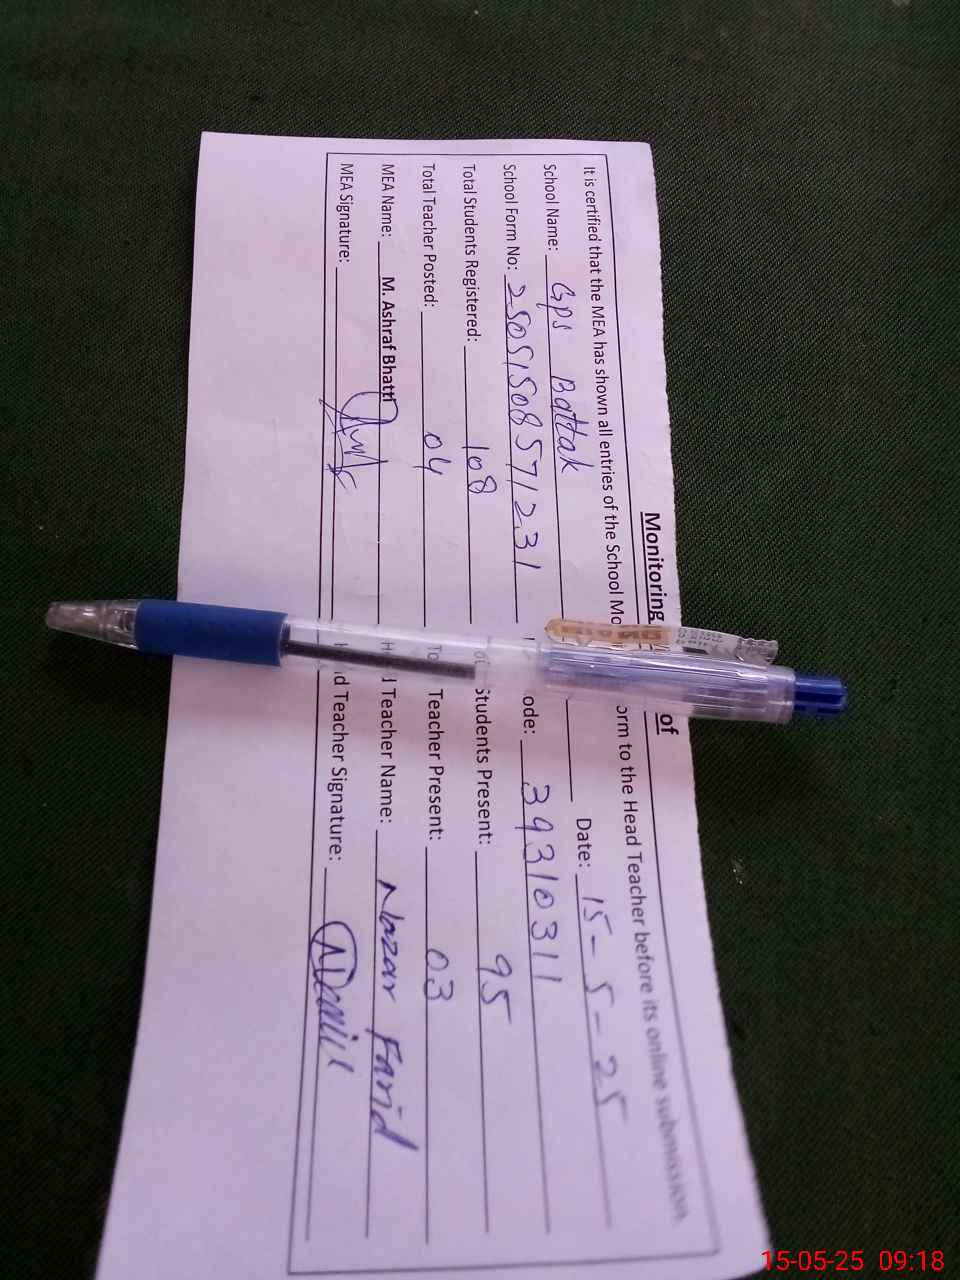 Monitoring of
It is certified that the MEA has shown all entries of the School Mo orm to the Head Teacher before its online submission.
School Name: Gps Battak Date: 15-5-25
School Form No: 25051508571231 ode: 39310311
Total Students Registered: 108 Students Present: 95
Total Teacher Posted: 04 To Teacher Present: 03
MEA Name: M. Ashraf Bhatti H d Teacher Name: Nazar Farid
MEA Signature: H d Teacher Signature:
15-05-25 09:18